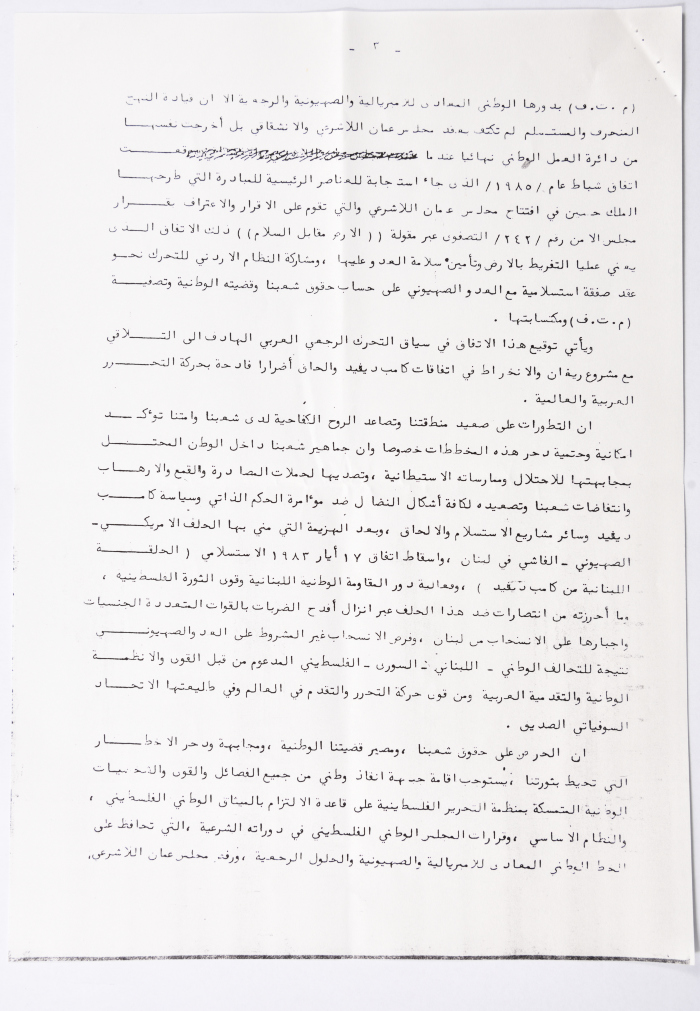 - ٢ -
(م.ت.ف) بدورها الوطني المعادي للامبريالية والصهيونية والرجعية الا ان قيادة النهج
المنحرف والمستسلم لم تكتف بعقد مجلس عمان اللاشرعي والانشقاقي بل أدرجت نفسها
من دائرة العمل الوطني نهائيا عندما وقعت
اتفاق شباط عام /١٩٨٥/ الذي جاء استجابة للعناصر الرئيسية للمبادرة التي طرحها
الملك حسين في افتتاح مجلس عمان اللاشرعي والتي تقوم على الاقرار والاعتراف بقرار
مجلس الامن رقم /٢٤٢/ التصفوي عبر مقولة ((الارض مقابل السلام)) ذلك الاتفاق الذي
يعني عمليا التفريط بالارض وتأمين سلامة العدو عليها ، ومشاركة النظام الاردني للتحرك نحو
عقد صفقة استسلامية مع العدو الصهيوني على حساب حقوق شعبنا وقضيته الوطنية وتصفية
(م.ت.ف) ومكتسابتها .
ويأتي توقيع هذا الاتفاق في سياق التحرك الرجعي العربي الهادف الى التلاقي
مع مشروع ريغان والانخراط في اتفاقات كامب ديفيد والحاق أضرارا فادحة بحركة التحرر
العربية والعالمية .
ان التطورات على صعيد منطقتنا وتصاعد الروح الكفاحية لدى شعبنا وامتنا تؤكد
امكانية وحتمية دحر هذه المخططات خصوصا وان جماهير شعبنا داخل الوطن المحتل
بمجابهتها للاحتلال وممارساته الاستيطانية ، وتصديها لحملات المصادرة والقمع والارهاب
وانتفاضات شعبنا وتصعيده لكافة أشكال النضال ضد مؤامرة الحكم الذاتي وسياسة كامب
ديفيد وسائر مشاريع الاستسلام والالحاق ، وبعد الهزيمة التي مني بها الحلف الامريكي-
الصهيوني - الفاشي في لبنان ، واسقاط اتفاق ١٧ أيار ١٩٨٣ الاستسلامي ( الحلقة
اللبنانية من كامب ديفيد ) ، وفعالية دور المقاومة الوطنيه اللبنانية وقوى الثورة الفلسطينيه ،
وما أحرزته من انتصارات ضد هذا الحلف عبر انزال أفدح الضربات بالقوات المتعددة الجنسيات
واجبارها على الانسحاب من لبنان ، وفرض الانسحاب غير المشروط على العدو الصهيوني
نتيجة للتحالف الوطني - اللبناني - السوري - الفلسطيني المدعوم من قبل القوى والانظمة
الوطنية والتقدمية العربية ومن قوى حركة التحرر والتقدم في العالم وفي طليعتها الاتحاد
السوفياتي الصديق .
ان الحرص على حقوق شعبنا ، ومصير قضيتنا الوطنية ، ومجابهة ودحر الاخطار
التي تحيط بثورتنا ، يستوجب اقامة جبهة انقاذ وطني من جميع الفصائل والقوى والشخصيات
الوطنية المتمسكة بمنظمة التحرير الفلسطينية على قاعدة الالتزام بالميثاق الوطني الفلسطيني ،
والنظام الاساسي ، وقرارات المجلس الوطني الفلسطيني في دوراته الشرعية ، التي تحافظ على
الخط الوطني المعادي للامبريالية والصهيونية والحلول الرجعية ، ورفض مجلس عمان اللاشرعي.